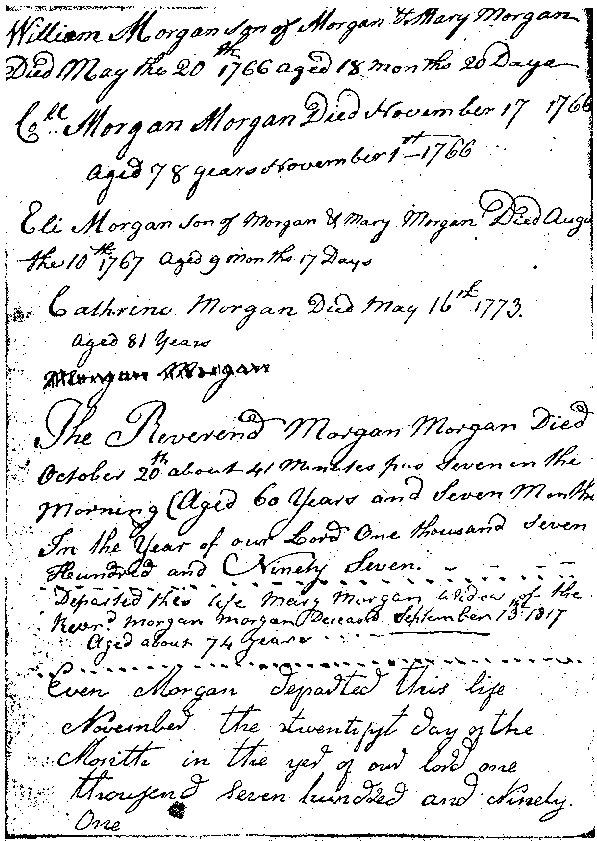 William Morgan son of Morgan & Mary Morgan
Died May the 20th 1766 aged 18 months 20 Days
Coll Morgan Morgan Died November 17 1766
Aged 78 years November 1st 1766
Eli Morgan son of Morgan & Mary Morgan Died Augu
the 10th 1767 Aged 9 months 17 Days
Cathrine Morgan Died May 16th 1773.
aged 81 Years
Morgan Morgan
The Reverend Morgan Morgan Died
October 20th about 41 Minutes pas Seven in the
Morning (Aged 60 Years and Seven Months
In the Year of our Lord One thousand Seven
Hundred and Ninety Seven.
Departed this life Mary Morgan Widow of the
Revrd Morgan Morgan Deceased September 13th 1817
Aged about 74 years
Even Morgan departed this life
November the twentifyt day of the
Month in the yer of our lord one
thousend Seven hundred and Ninety.
One